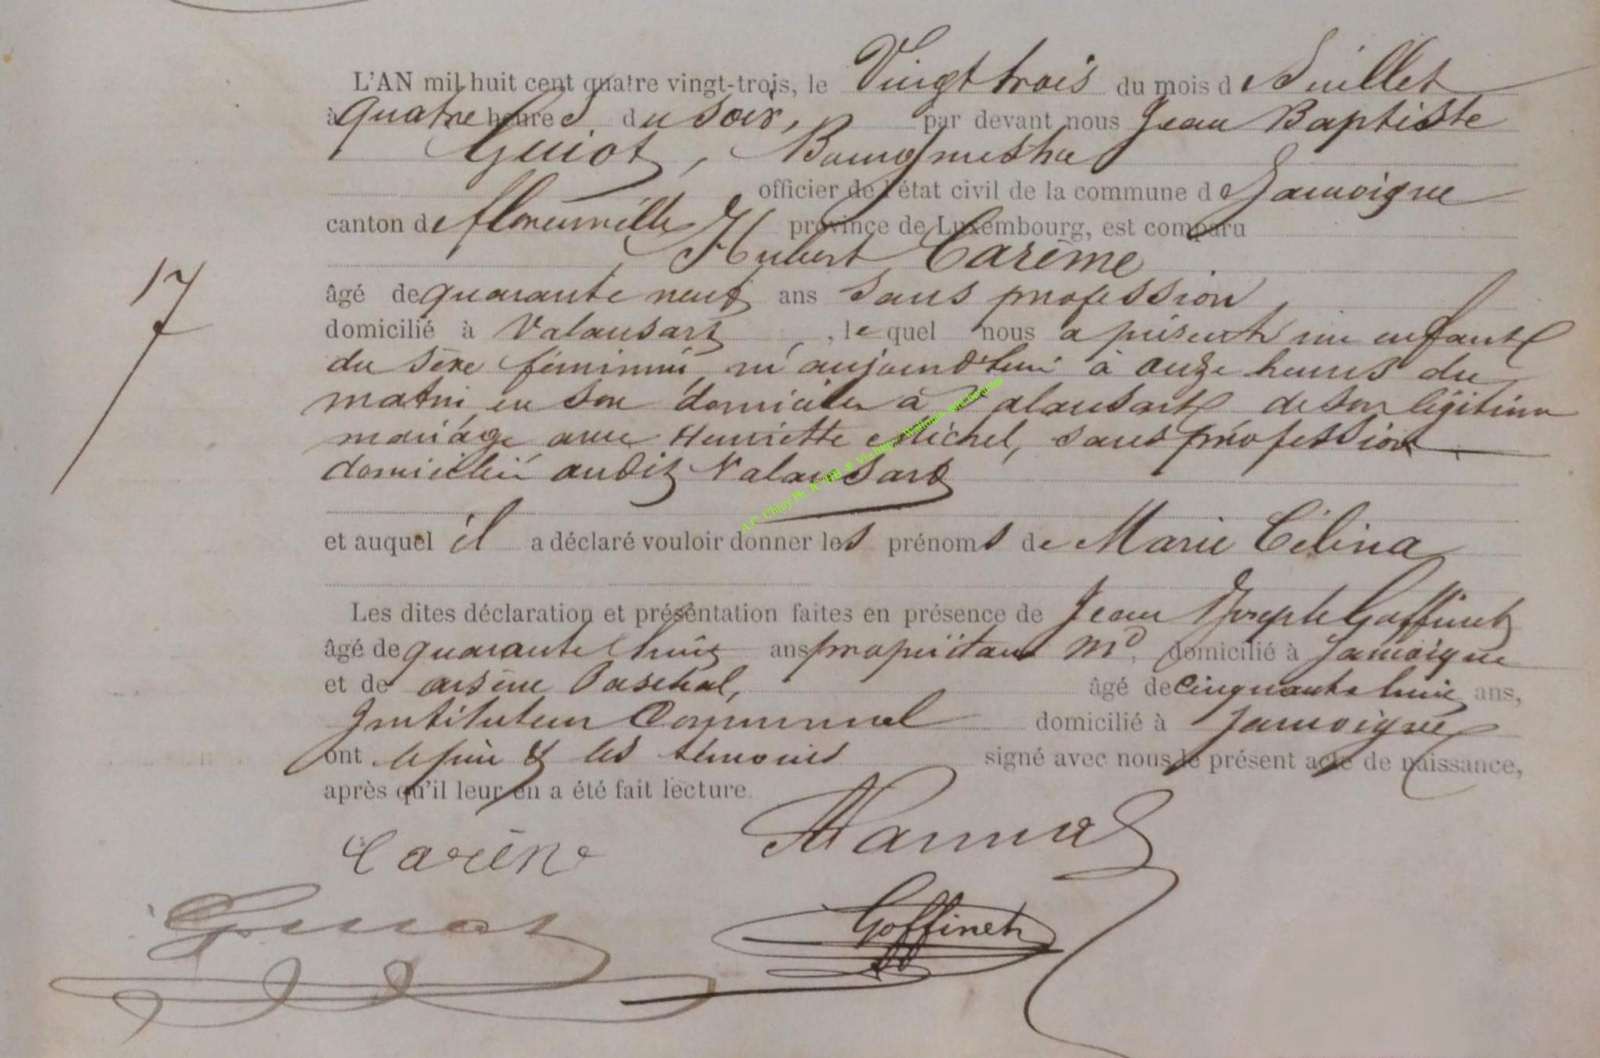 L'AN mil huit cent quatre vingt-trois, le Vingt trois du mois de Juillet
à quatre heures du soir, par devant nous Jean Baptiste
Guiot, Bourgmestre
officier de l'état civil de la commune de Jamoigne
canton de florenville province de Luxembourg, est comparu
Hubert Carême
17
âgé de quarante neuf ans sans profession
domicilié à Valansart, lequel nous a présenté un enfant
du sexe féminin né aujourd'hui à onze heures du
matin en son domicile à Valansart de son légitime
mariage avec Henriette Michel, sans profession
domicilié audit Valansart
et auquel il a déclaré vouloir donner les prénoms de Marie Célina
Les dites déclaration et présentation faites en présence de Jean Joseph Goffinet
âgé de quarante huit ans propriétaire md. domicilié à Jamoigne
et de arsène Paschal, âgé de cinquante huit ans,
Instituteur Communal domicilié à Jamoigne
ont le père & les témoins signé avec nous le présent acte de naissance,
après qu'il leur en a été fait lecture.
Carême
Guiot
Goffinet